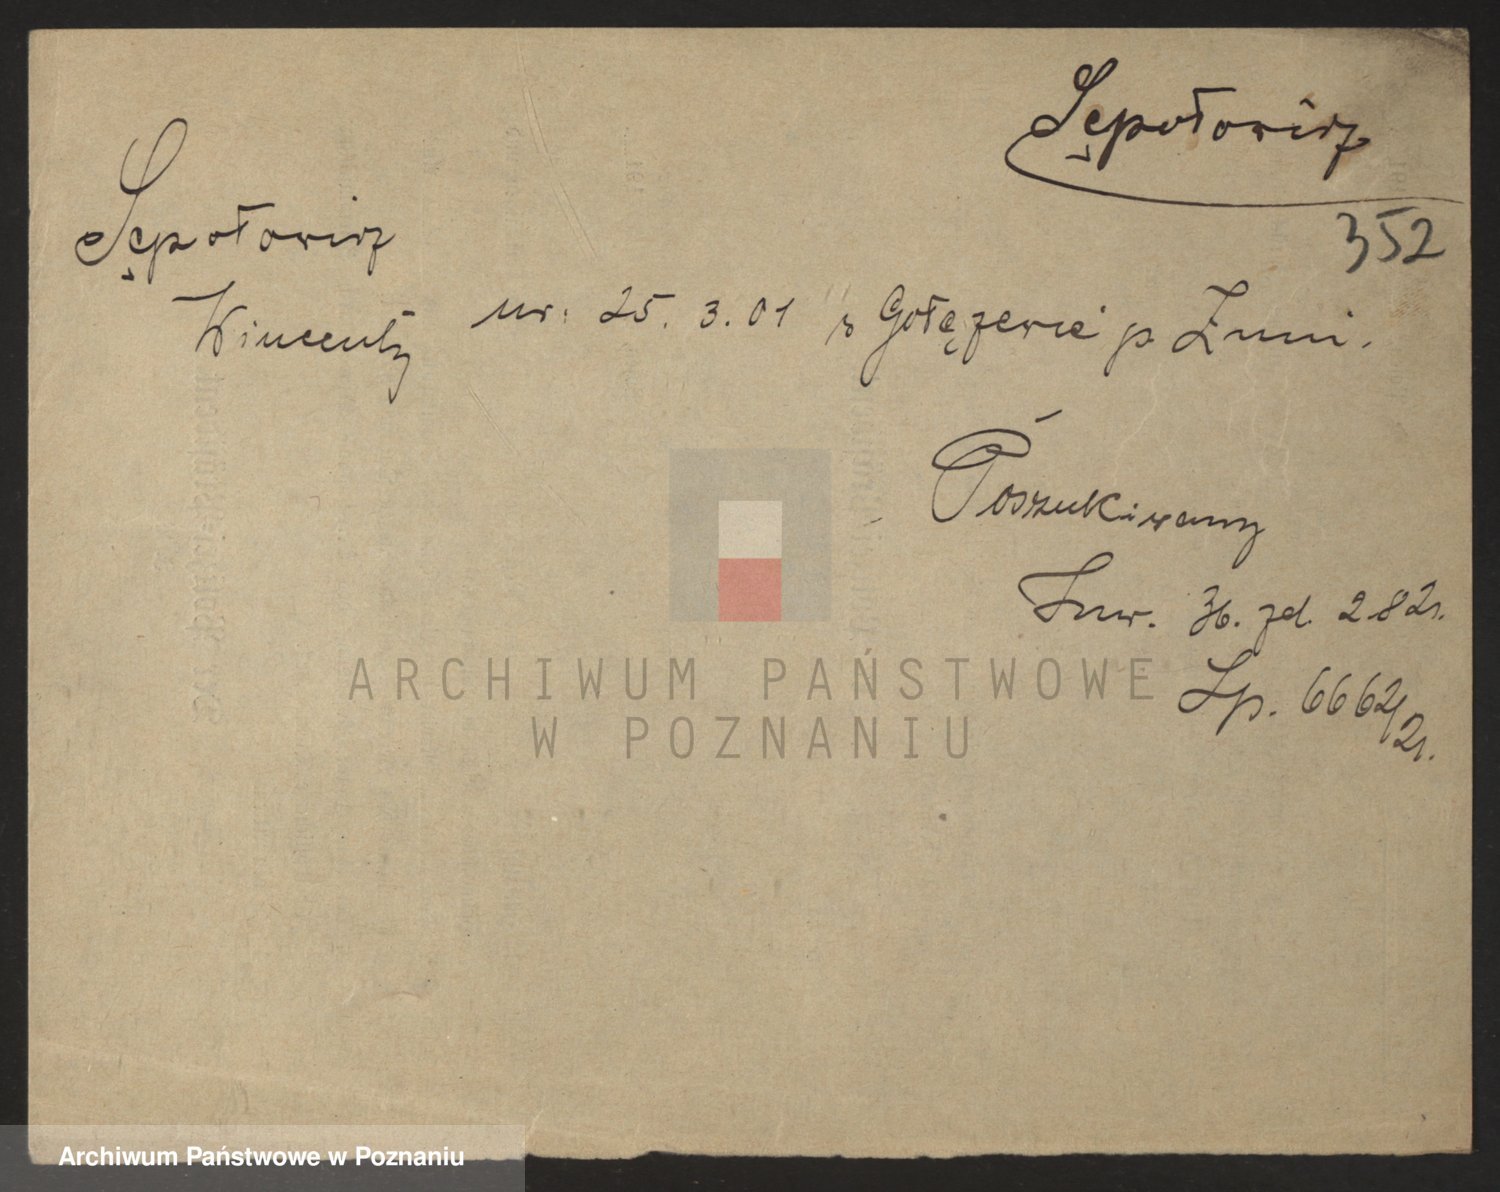 Sępołowicz
352
Sępołowicz
Wincenty ur: 25. 3. 01 w Gołęzewie p Żnin.
Poszukiwany
Inw. 36. zd. 282r.
Lp. 6662/2r.
ARCHIWUM PAŃSTWOWE
W POZNANIU
Archiwum Państwowe w Poznaniu